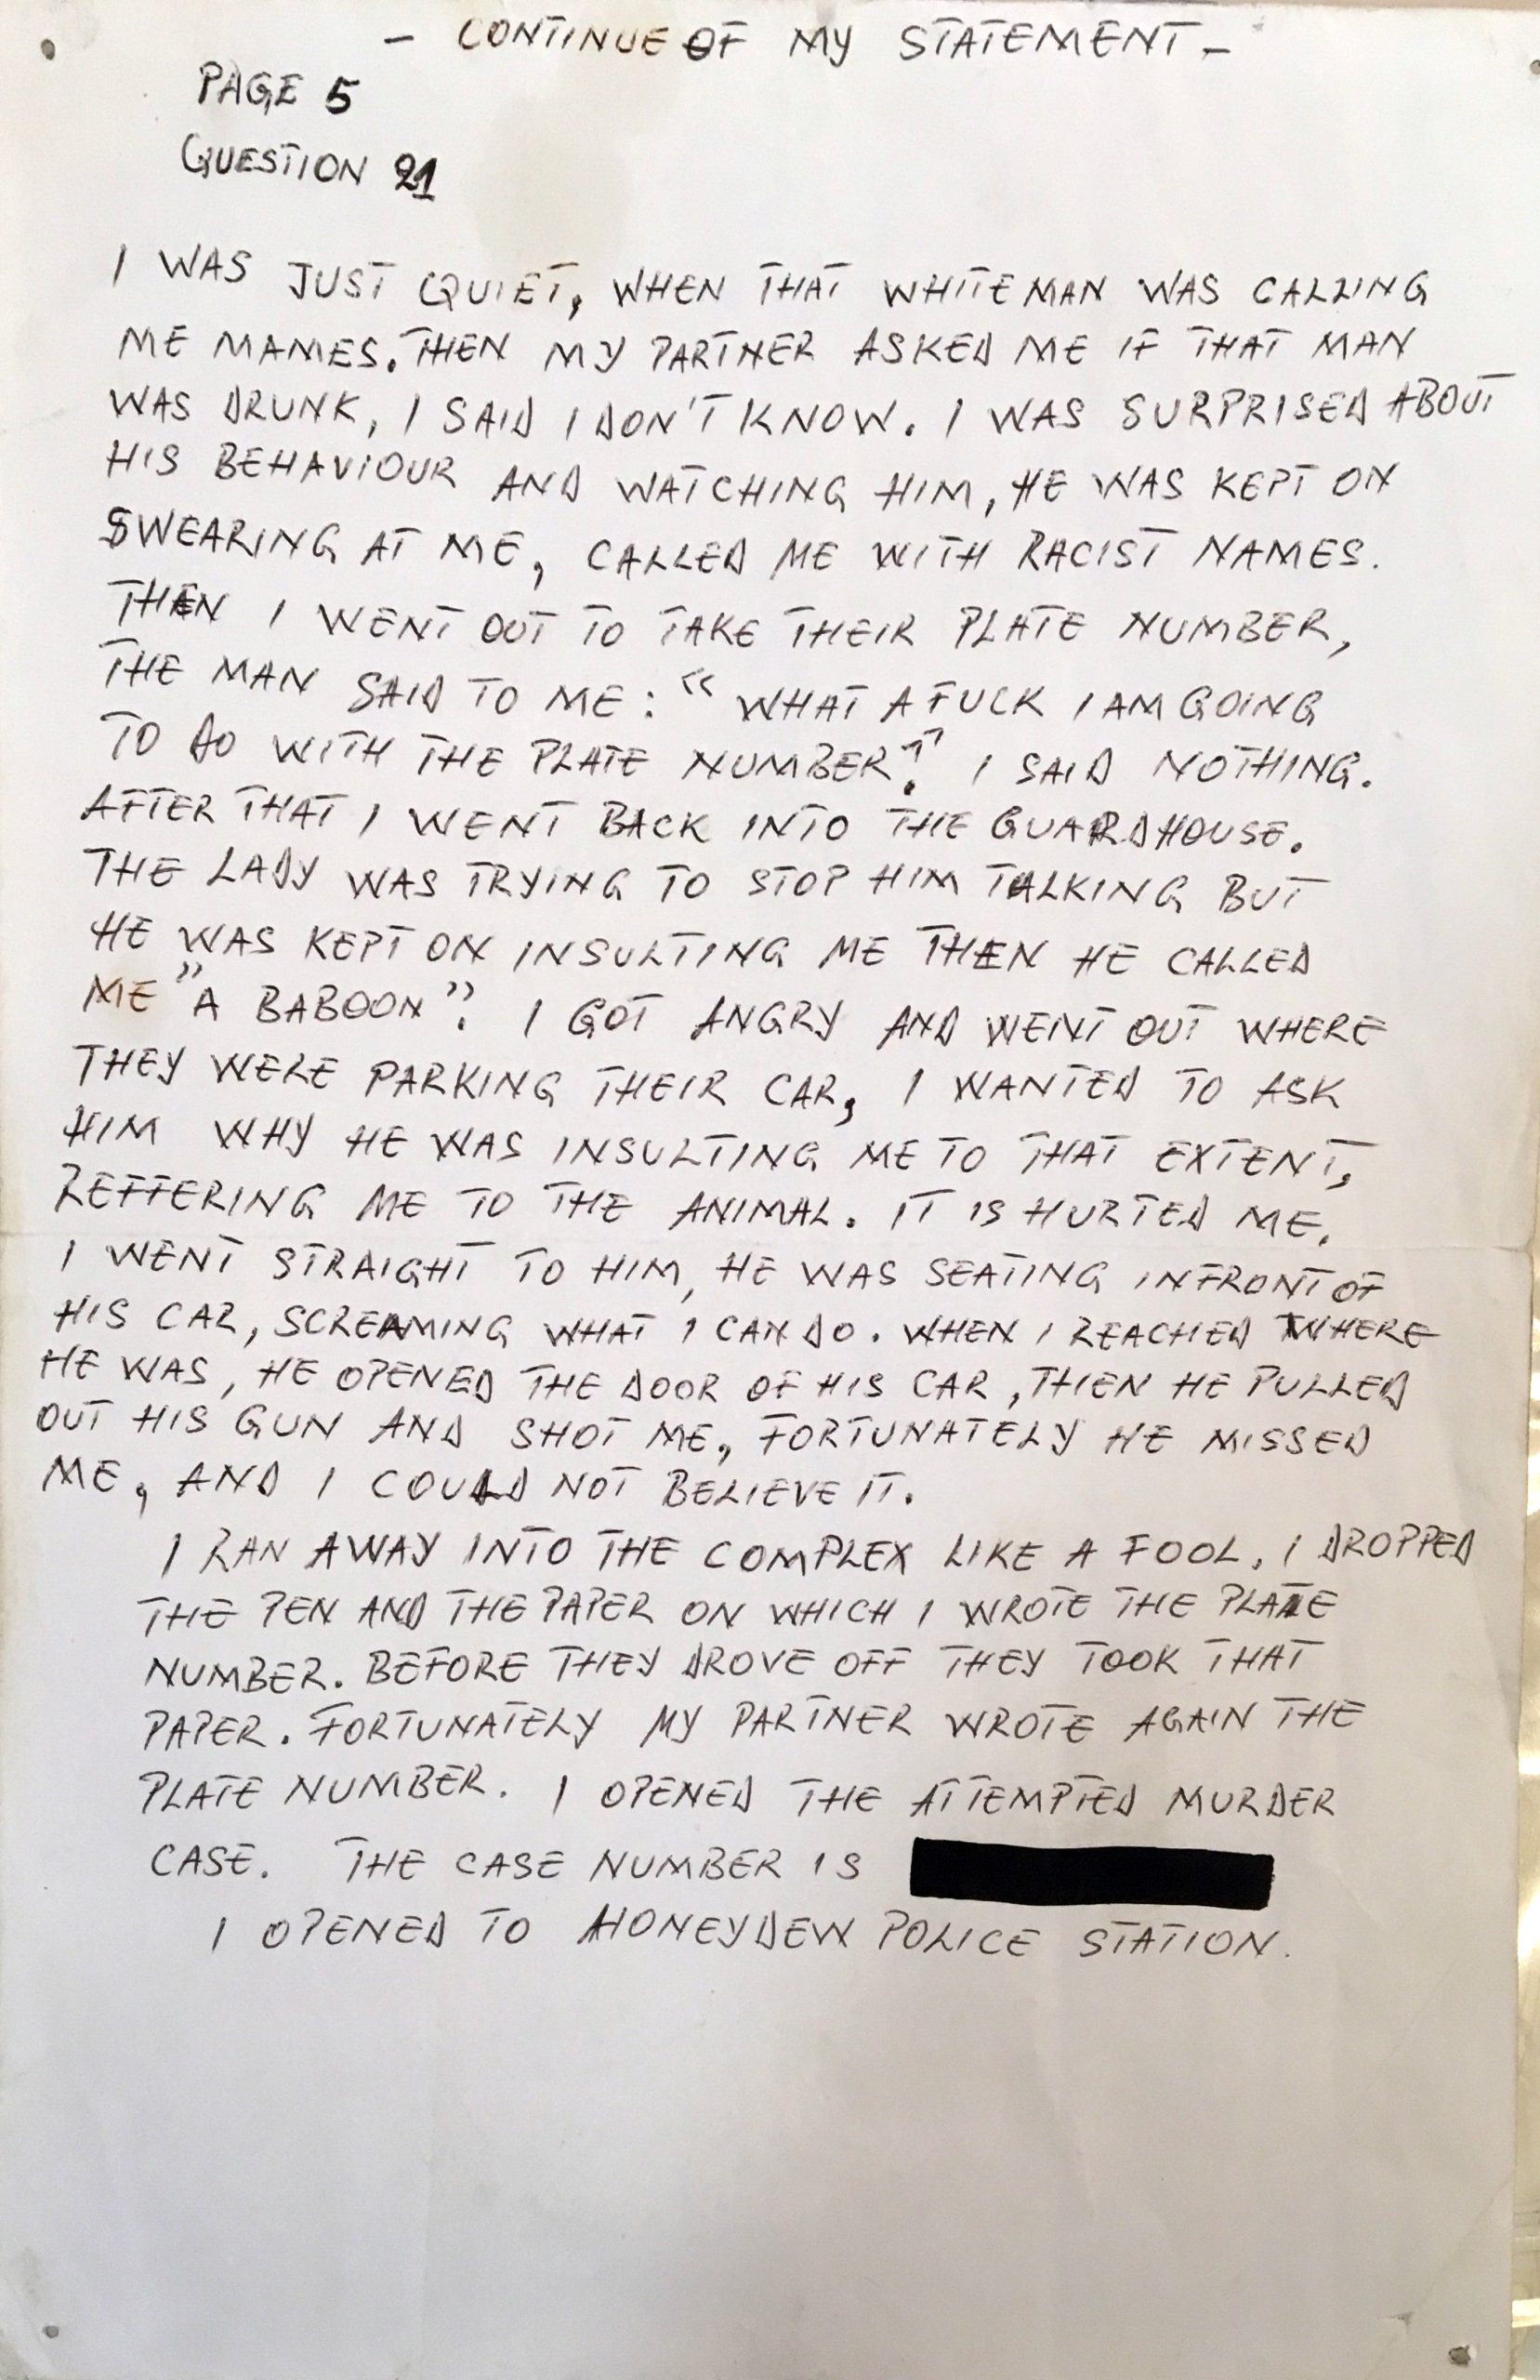 - CONTINUE OF MY STATEMENT -
PAGE 5
QUESTION 21
I WAS JUST QUIET, WHEN THAT WHITE MAN WAS CALLING
ME MAMES. THEN MY PARTNER ASKED ME IF THAT MAN
WAS DRUNK, I SAID I DON'T KNOW. I WAS SURPRISED ABOUT
HIS BEHAVIOUR AND WATCHING HIM, HE WAS KEPT ON
SWEARING AT ME, CALLED ME WITH RACIST NAMES.
THEN I WENT OUT TO TAKE THEIR PLATE NUMBER,
THE MAN SAID TO ME: "WHAT A FUCK I AM GOING
TO DO WITH THE PLATE NUMBER?" I SAID NOTHING.
AFTER THAT I WENT BACK INTO THE GUARDHOUSE.
THE LADY WAS TRYING TO STOP HIM TALKING BUT
HE WAS KEPT ON INSULTING ME THEN HE CALLED
ME "A BABOON". I GOT ANGRY AND WENT OUT WHERE
THEY WERE PARKING THEIR CAR, I WANTED TO ASK
HIM WHY HE WAS INSULTING ME TO THAT EXTENT,
REFFERING ME TO THE ANIMAL. IT IS HURTED ME.
I WENT STRAIGHT TO HIM, HE WAS SEATING INFRONT OF
HIS CAR, SCREAMING WHAT I CAN DO. WHEN I REACHED WHERE
HE WAS, HE OPENED THE DOOR OF HIS CAR, THEN HE PULLED
OUT HIS GUN AND SHOT ME, FORTUNATELY HE MISSED
ME, AND I COULD NOT BELIEVE IT.
I RAN AWAY INTO THE COMPLEX LIKE A FOOL. I DROPPED
THE PEN AND THE PAPER ON WHICH I WROTE THE PLATE
NUMBER. BEFORE THEY DROVE OFF THEY TOOK THAT
PAPER. FORTUNATELY MY PARTNER WROTE AGAIN THE
PLATE NUMBER. I OPENED THE ATTEMPTED MURDER
CASE. THE CASE NUMBER IS
I OPENED TO HONEYDEW POLICE STATION.